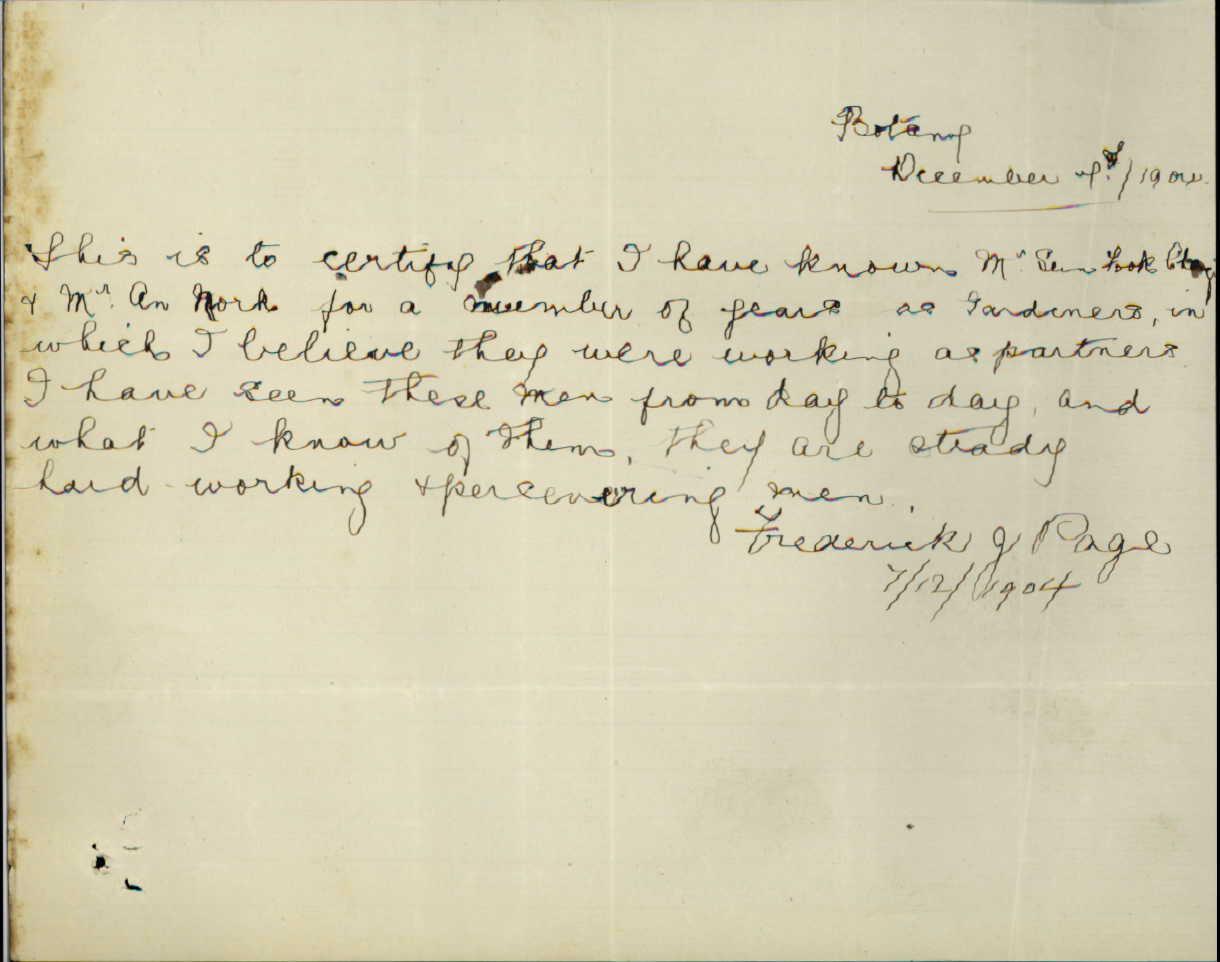 Botany
December 7th/1904
This is to certify that I have known Mr Sun Kook
& Mr. An York for a number of years as Gardiners, in
which I believe they were working as partners
I have seen these men from day to day, and
what I know of them, they are steady
hard working & persevering men.
Frederick J Page
7/12/1904